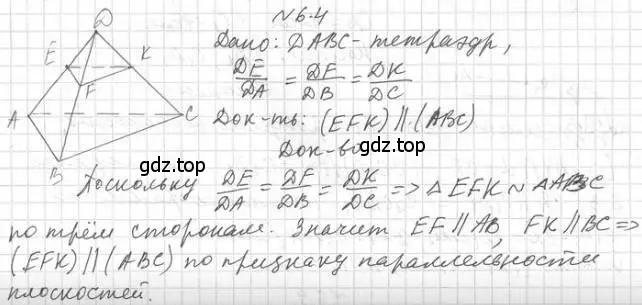 № 6.4
D
Дано: DABC - тетраэдр,
E K
DE/DA = DF/DB = DK/DC
F
A C
Док-ть: (EFK) || (ABC)
Док-во
B
gdz.top
gdz.top
Поскольку DE/DA = DF/DB = DK/DC => △EFK ~ △ABC
по трём сторонам. Значит EF || AB, FK || BC =>
(EFK) || (ABC) по признаку параллельности
плоскостей.
gdz.top